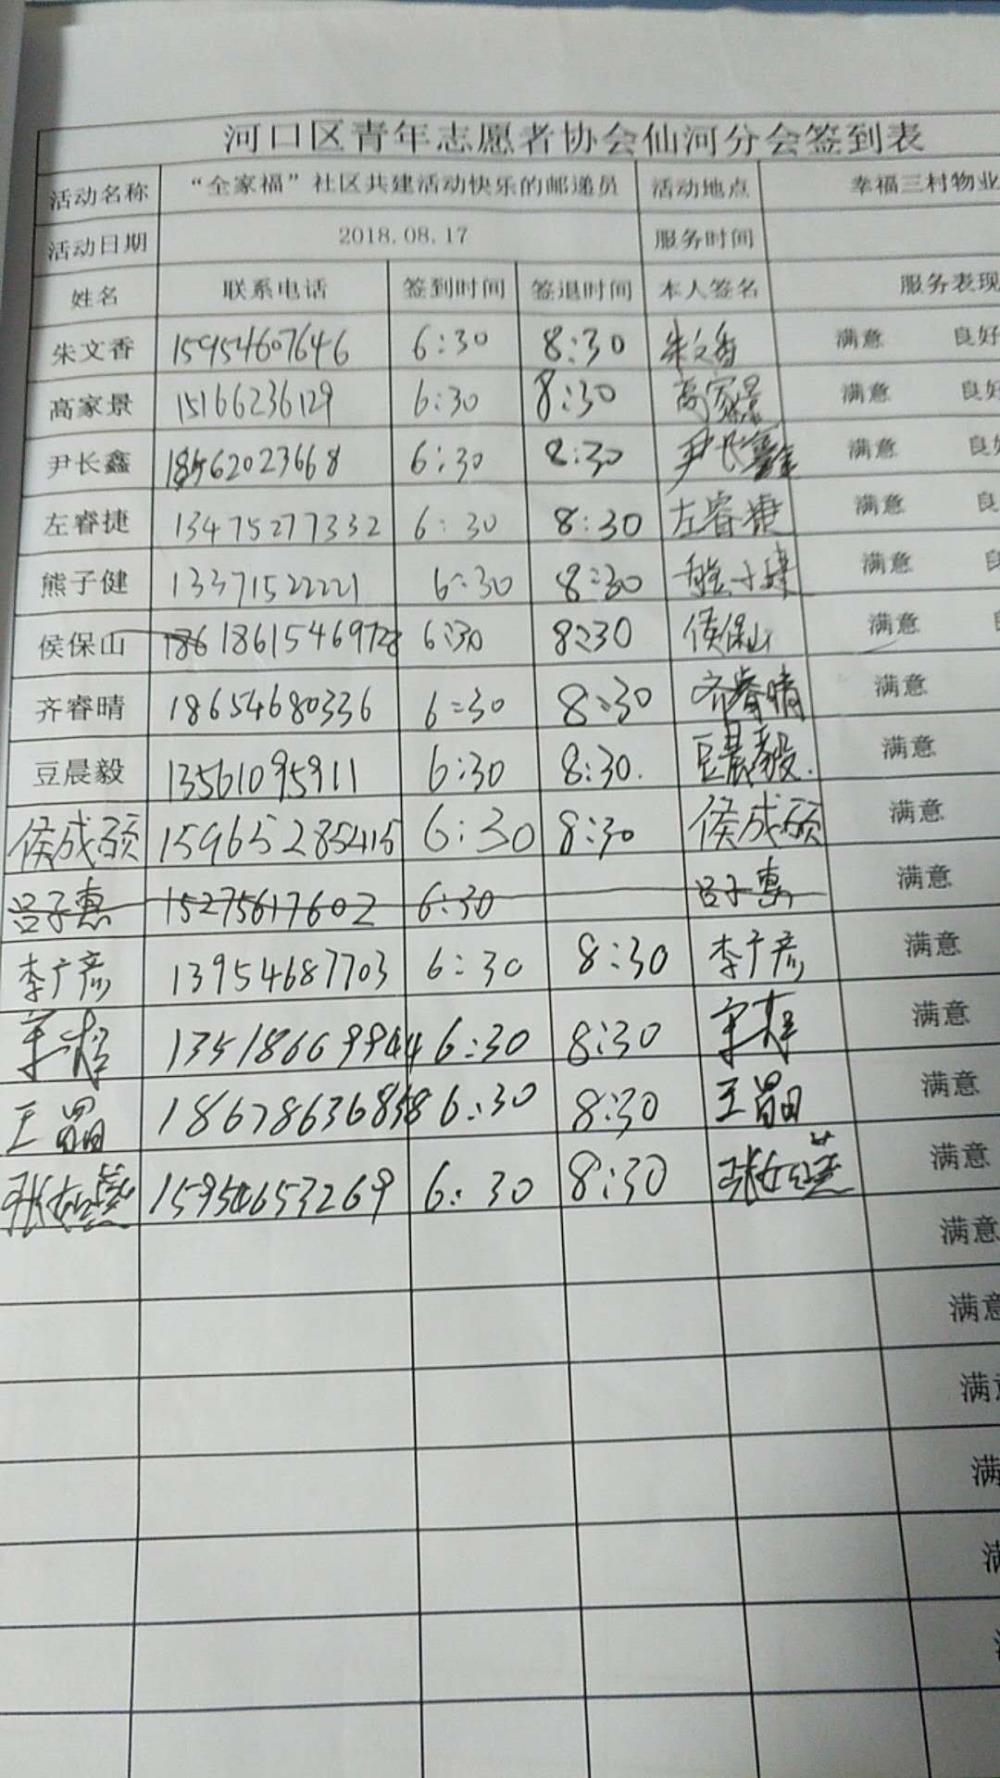 河口区青年志愿者协会仙河分会签到表
活动名称 “全家福”社区共建活动快乐的邮递员 活动地点 幸福三村物业
活动日期 2018.08.17 服务时间
姓名 联系电话 签到时间 签退时间 本人签名 服务表现
朱文香 15954607646 6:30 8:30 朱文香 满意 良好
高家景 15166236129 6:30 8:30 高家景 满意 良好
尹长鑫 18562023668 6:30 8:30 尹长鑫 满意 良好
左睿捷 13475277332 6:30 8:30 左睿捷 满意 良
熊子健 13371522221 6:30 8:30 熊子健 满意
侯保山 18615469728 6:30 8:30 侯保山 满意
齐睿晴 18654680336 6:30 8:30 齐睿晴 满意
豆晨毅 13561095911 6:30 8:30. 豆晨毅. 满意
侯成硕 15965285415 6:30 8:30 侯成硕 满意
吕子惠 15275617602 6:30 吕子惠 满意
李广彦 13954687703 6:30 8:30 李广彦 满意
6:30 8:30 满意
王 6:30 8:30 王 满意
张 15954653269 6:30 8:30 张 满意
满意
满意
满意
满
满